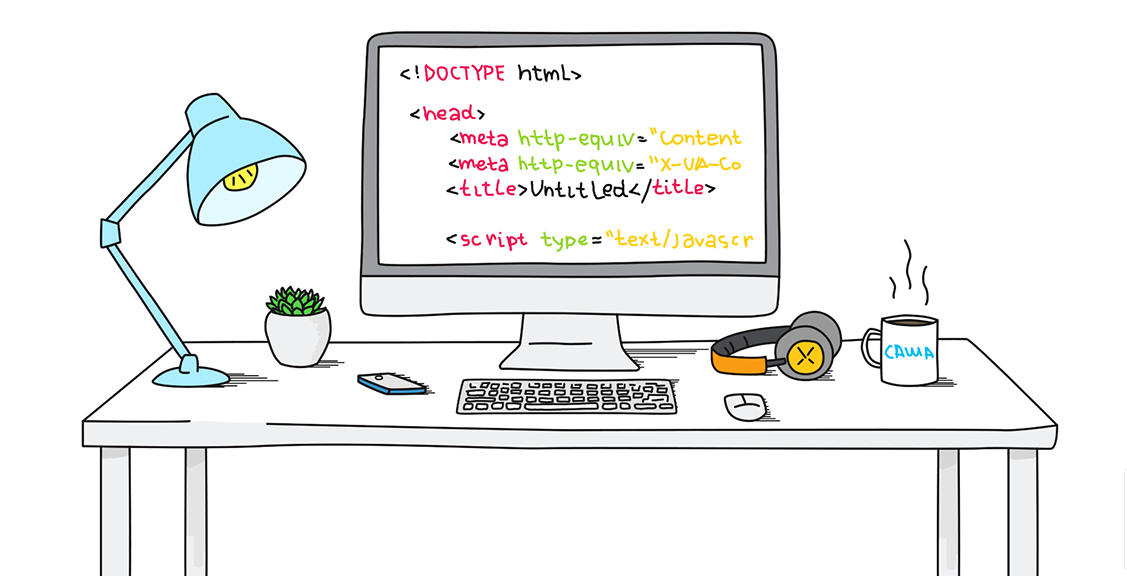 <!DOCTYPE html>
<head>
<meta http-equiv="Content
<meta http-equiv="X-UA-Co
<title>Untitled</title>
<script type="text/javascr
САША